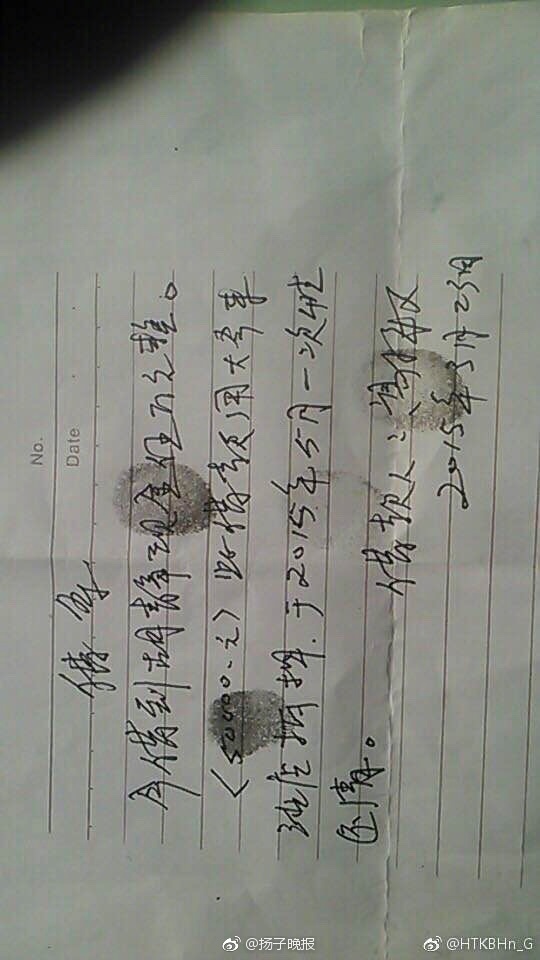 No.
Date
借条
今借到胡静现金伍万元整。
(50000.元)此借款用大众车
抵押.于2015年5月一次性
还清。
借款人:
2015年3月23日
@扬子晚报
@HTKBHn_G